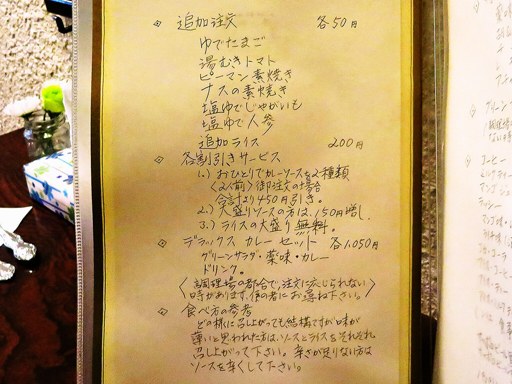 追加注文 各50円
ゆでたまご
湯むきトマト
ピーマン素焼き
ナスの素焼き
塩ゆでじゃがいも
塩ゆで人参
追加ライス 200円
各割引きサービス
1.) おひとりでカレーソースを2種類
〈2人前〉御注文の場合
合計より450円引き。
2.) 大盛りソースの方は、150円増し.
3.) ライスの大盛り 無料.
デラックス カレー セット 各1,050円
グリーンサラダ・薬味・カレー
ドリンク。
〈調理場の都合で、注文に応じられない
時があります、係の者にお尋ね下さい。〉
食べ方の参考
どの様に召し上がっても結構ですが味が
薄いと思われた方は、ソースとライスをそれぞれ
召し上がって下さい。辛さが足りない方は
ソースを辛くして下さい。